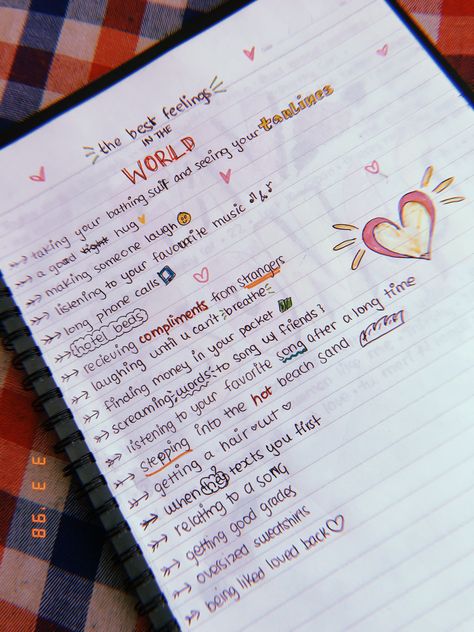 the best feelings
IN THE
WORLD
taking your bathing suit and seeing your tanlines
a good tight hug
making someone laugh
listening to your favourite music
long phone calls
hotel beds
recieving compliments from strangers
laughing until u can't breathe
finding money in your pocket
screaming words to song w/ friends!
listening to your favorite song after a long time
stepping into the hot beach sand
getting a hair cut
when texts you fist
relating to a song
getting good grades
oversized sweatshirts
being liked loved back
3 3 '98